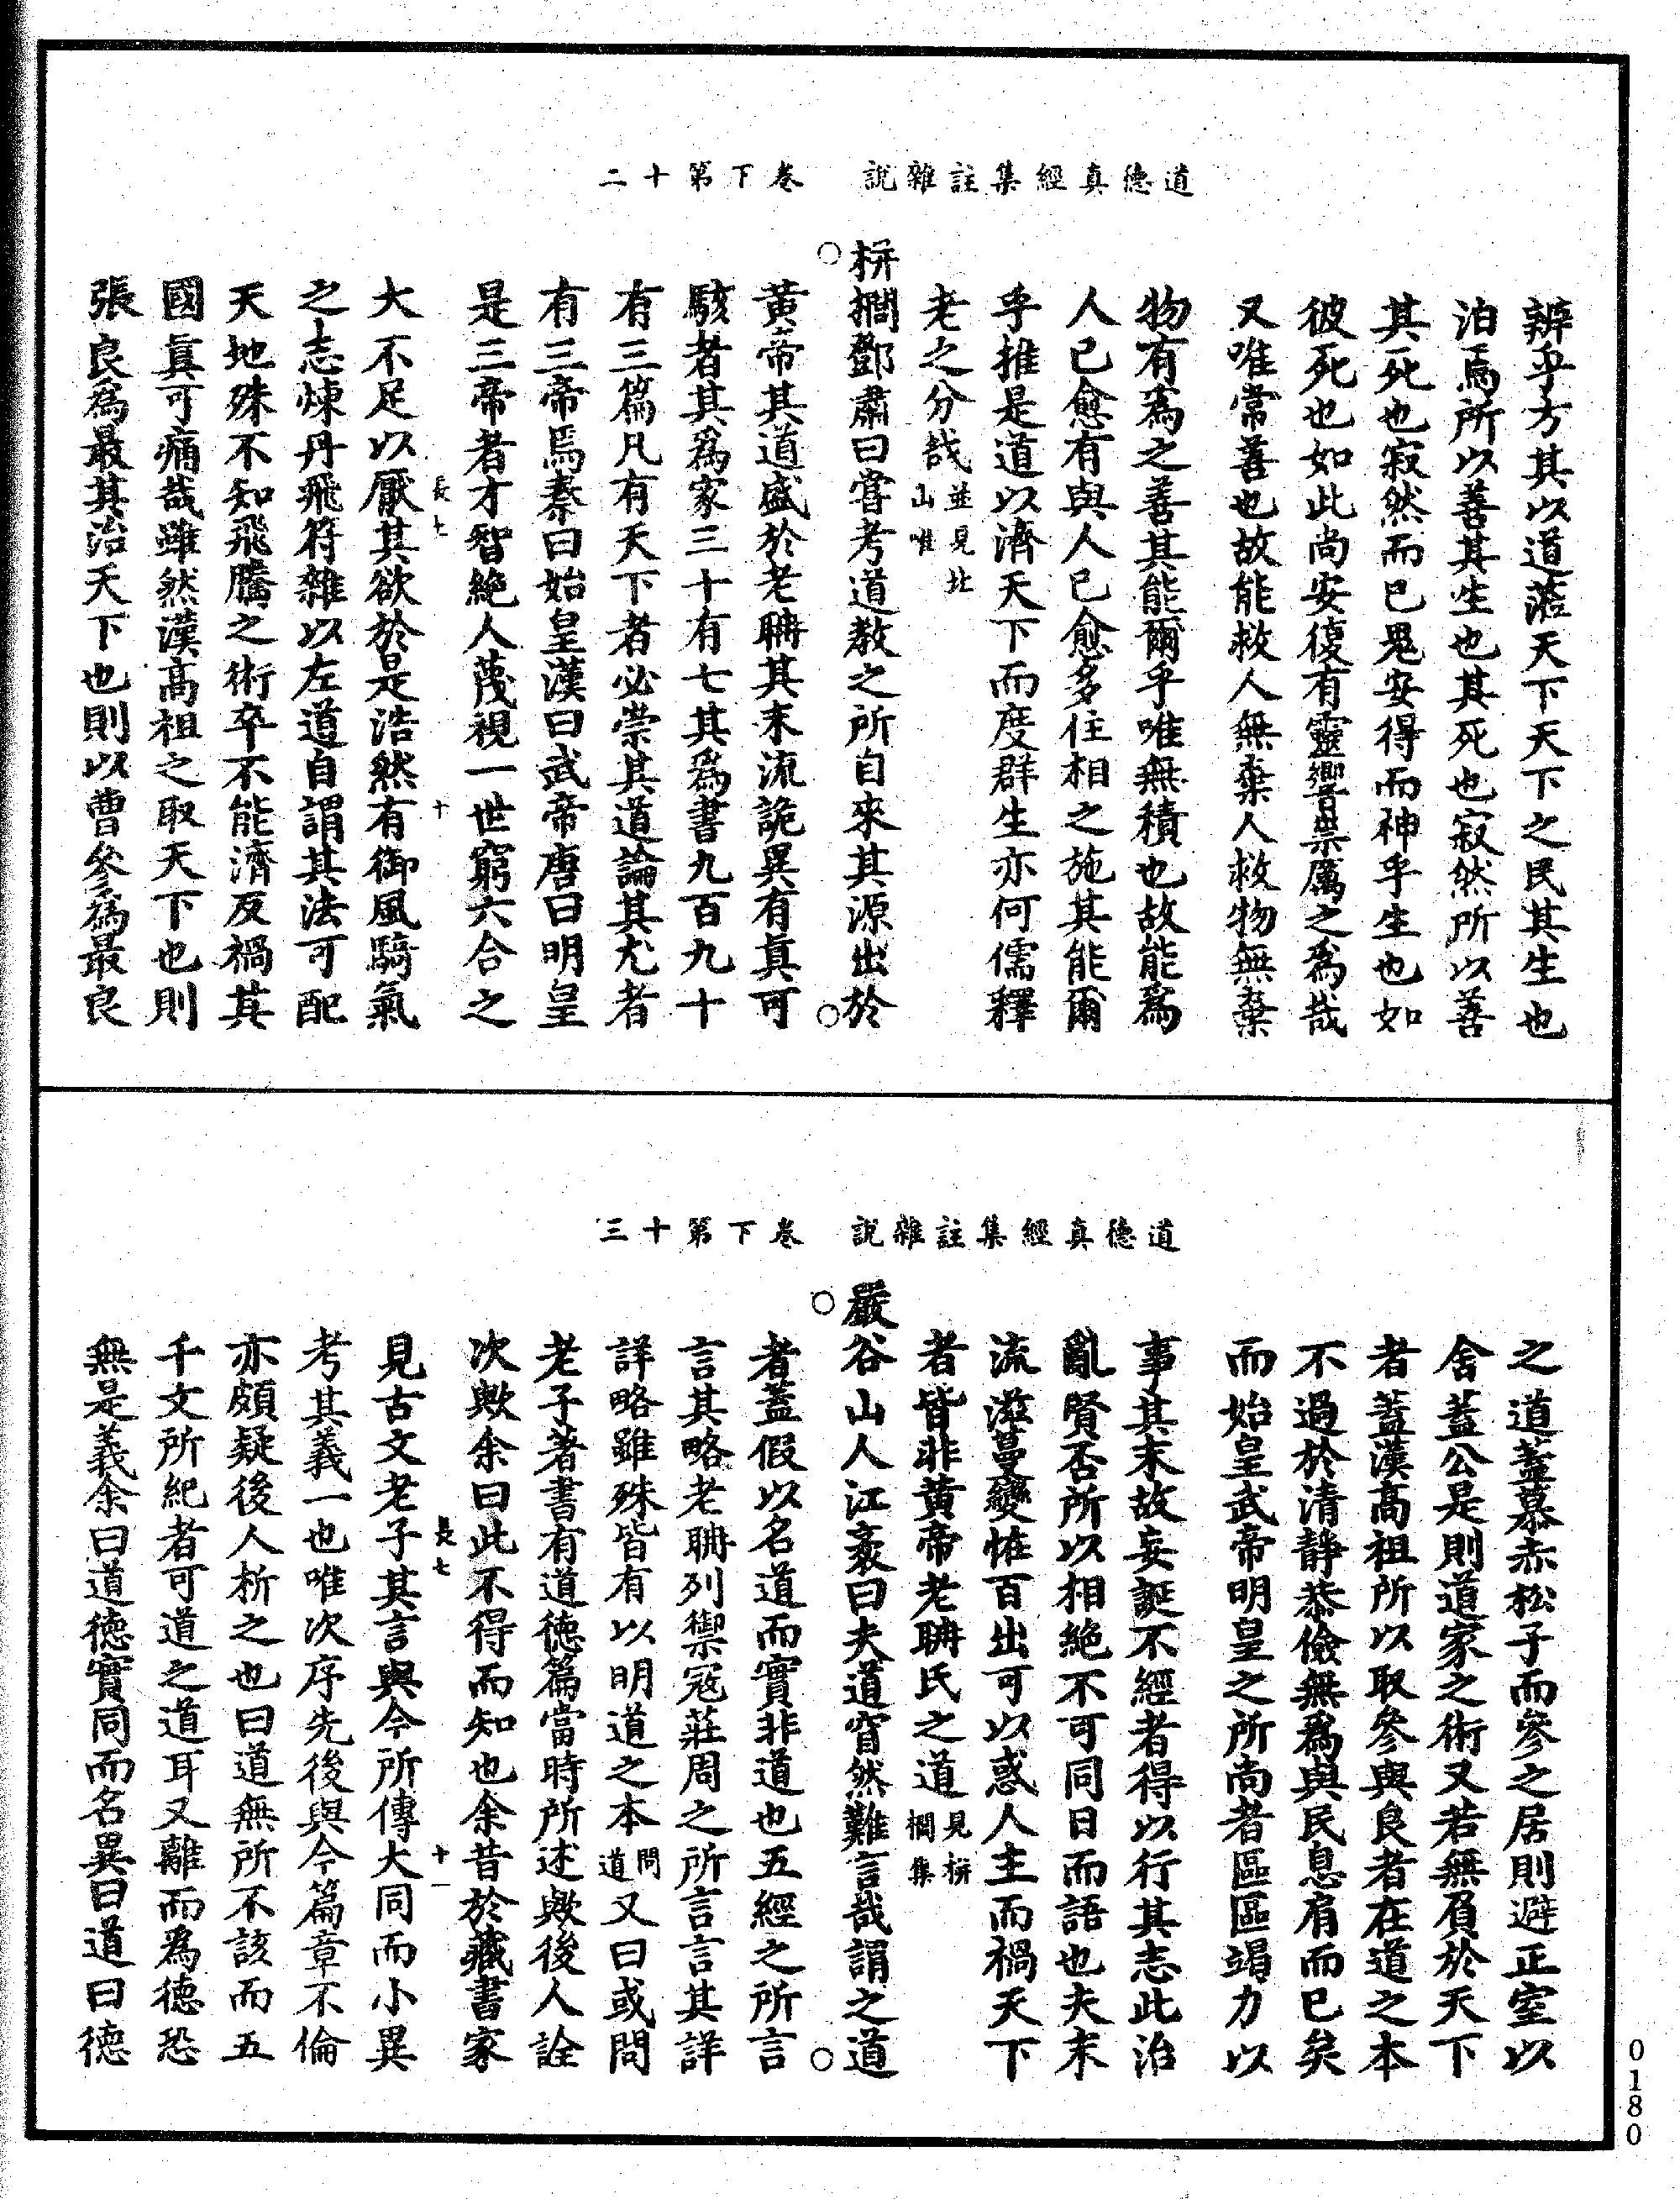 道德真經集註雜說　卷下第十二
辨乎方其以道蒞天下天下之民其生也
泊焉所以善其生也其死也寂然所以善
其死也寂然而已鬼安得而神乎生也如
彼死也如此尚安復有靈響祟厲之爲哉
又唯常善也故能救人無棄人救物無棄
物有爲之善其能爾乎唯無積也故能爲
人已愈有與人已愈多往相之施其能爾
乎推是道以濟天下而度群生亦何儒釋
老之分哉並見北山唯
栟櫚鄧肅曰嘗考道教之所自來其源出於
黃帝其道盛於老聃其末流詭異有真可
駭者其爲家三十有七其爲書九百九十
有三篇凡有天下者必崇其道論其尤者
有三帝焉秦曰始皇漢曰武帝唐曰明皇
是三帝者才智絶人蔑視一世窮六合之
長七　十
大不足以厭其欲於是浩然有御風騎氣
之志煉丹飛符雜以左道自謂其法可配
天地殊不知飛騰之術卒不能濟反禍其
國真可痛哉雖然漢高祖之取天下也則
張良爲最其治天下也則以曹參爲最良
道德真經集註雜說　卷下第十三
之道蓋慕赤松子而參之居則避正室以
舍蓋公是則道家之術又若無負於天下
者蓋漢高祖所以取參與良者在道之本
不過於清靜恭儉無爲與民息肩而已矣
而始皇武帝明皇之所尚者區區竭力以
事其末故妄誕不經者得以行其志此治
亂賢否所以相絶不可同日而語也夫末
流滋蔓變恠百出可以惑人主而禍天下
者皆非黃帝老聃氏之道見栟櫚集
嚴谷山人江袤曰夫道窅然難言哉謂之道
者蓋假以名道而實非道也五經之所言
言其略老聃列禦寇莊周之所言言其詳
詳略雖殊皆有以明道之本問道又曰或問
老子著書有道德篇當時所述歟後人詮
次歟余曰此不得而知也余昔於藏書家
長七　十一
見古文老子其言與今所傳大同而小異
考其義一也唯次序先後與今篇章不倫
亦頗疑後人析之也曰道無所不該而五
千文所紀者可道之道耳又離而爲德恐
無是義余曰道德實同而名異曰道曰德
0180